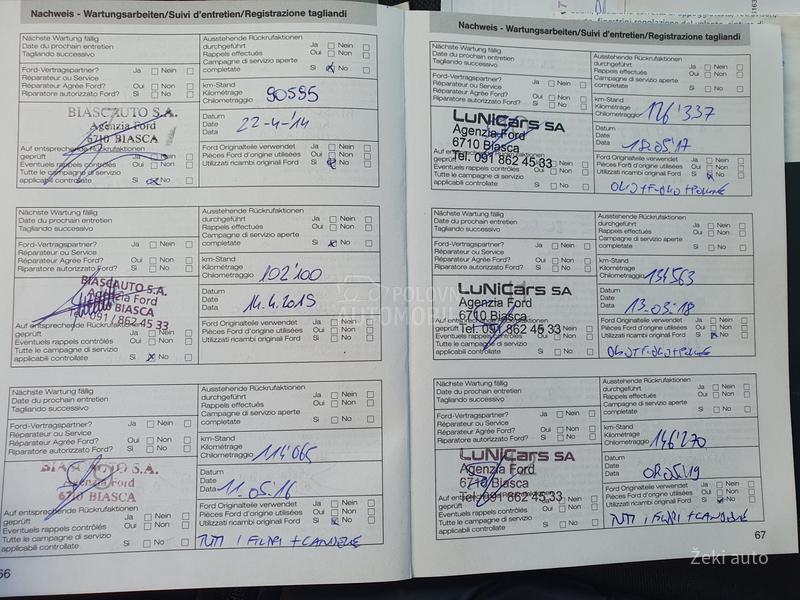 Nachweis - Wartungsarbeiten/Suivi d'entretien/Registrazione tagliandi
Nächste Wartung fällig
Date du prochain entretien
Tagliando successivo
Ausstehende Rückrufaktionen
durchgeführt Ja Nein
Rappels effectués Oui Non
Campagne di servizio aperte
completate Si No
Ford-Vertragspartner? Ja Nein
Réparateur ou Service
Réparateur Agrée Ford? Oui Non
Riparatore autorizzato Ford? Si No
km-Stand
Kilométrage
Chilometraggio 90595
BIASCAUTO S.A.
Agenzia Ford
6710 BIASCA
Datum
Date
Data 22-4-'14
Auf entsprechende Rückrufaktionen
geprüft Ja Nein
Eventuels rappels contrôlés Oui Non
Tutte le campagne di servizio
applicabili controllate Si No
Ford Originalteile verwendet Ja Nein
Pièces Ford d'origine utilisées Oui Non
Utilizzati ricambi original Ford Si No
Nächste Wartung fällig
Date du prochain entretien
Tagliando successivo
Ausstehende Rückrufaktionen
durchgeführt Ja Nein
Rappels effectués Oui Non
Campagne di servizio aperte
completate Si No
Ford-Vertragspartner? Ja Nein
Réparateur ou Service
Réparateur Agrée Ford? Oui Non
Riparatore autorizzato Ford? Si No
km-Stand
Kilométrage
Chilometraggio 102'100
BIASCAUTO S.A.
Agenzia Ford
BIASCA
091 / 862 45 33
Datum
Date
Data 14.4.2015
Auf entsprechende Rückrufaktionen
geprüft Ja Nein
Eventuels rappels contrôlés Oui Non
Tutte le campagne di servizio
applicabili controllate Si No
Ford Originalteile verwendet Ja Nein
Pièces Ford d'origine utilisées Oui Non
Utilizzati ricambi original Ford Si No
Nächste Wartung fällig
Date du prochain entretien
Tagliando successivo
Ausstehende Rückrufaktionen
durchgeführt Ja Nein
Rappels effectués Oui Non
Campagne di servizio aperte
completate Si No
Ford-Vertragspartner? Ja Nein
Réparateur ou Service
Réparateur Agrée Ford? Oui Non
Riparatore autorizzato Ford? Si No
km-Stand
Kilométrage
Chilometraggio 114'065
BIASCAUTO S.A.
Agenzia Ford
6710 BIASCA
Datum
Date
Data 11.05.16
Auf entsprechende Rückrufaktionen
geprüft Ja Nein
Eventuels rappels contrôlés Oui Non
Tutte le campagne di servizio
applicabili controllate Si No
Ford Originalteile verwendet Ja Nein
Pièces Ford d'origine utilisées Oui Non
Utilizzati ricambi original Ford Si No
TUTTI I FILTRI + CANDELE
66
Nachweis - Wartungsarbeiten/Suivi d'entretien/Registrazione tagliandi
Nächste Wartung fällig
Date du prochain entretien
Tagliando successivo
Ausstehende Rückrufaktionen
durchgeführt Ja Nein
Rappels effectués Oui Non
Campagne di servizio aperte
completate Si No
Ford-Vertragspartner? Ja Nein
Réparateur ou Service
Réparateur Agrée Ford? Oui Non
Riparatore autorizzato Ford? Si No
km-Stand
Kilométrage
Chilometraggio 126'337
LUNICARS SA
Agenzia Ford
6710 Biasca
Tel. 091 862 45 33
Datum
Date
Data 18.05.17
geprüft
Eventuels rappels contrôlés Oui Non
Tutte le campagne di servizio
applicabili controllate Si No
Ford Originalteile verwendet Ja Nein
Pièces Ford d'origine utilisées Oui Non
Utilizzati ricambi original Ford Si No
Nächste Wartung fällig
Date du prochain entretien
Tagliando successivo
Ausstehende Rückrufaktionen
durchgeführt Ja Nein
Rappels effectués Oui Non
Campagne di servizio aperte
completate Si No
Ford-Vertragspartner? Ja Nein
Réparateur ou Service
Réparateur Agrée Ford? Oui Non
Riparatore autorizzato Ford? Si No
km-Stand
Kilométrage
Chilometraggio 134563
LUNICARS SA
Agenzia Ford
6710 Biasca
Tel. 091 862 45 33
Datum
Date
Data 13-03-18
geprüft
Eventuels rappels contrôlés Oui Non
Tutte le campagne di servizio
applicabili controllate Si No
Ford Originalteile verwendet Ja Nein
Pièces Ford d'origine utilisées Oui Non
Utilizzati ricambi original Ford Si No
Nächste Wartung fällig
Date du prochain entretien
Tagliando successivo
Ausstehende Rückrufaktionen
durchgeführt Ja Nein
Rappels effectués Oui Non
Campagne di servizio aperte
completate Si No
Ford-Vertragspartner? Ja Nein
Réparateur ou Service
Réparateur Agrée Ford? Oui Non
Riparatore autorizzato Ford? Si No
km-Stand
Kilométrage
Chilometraggio 146'270
LUNICARS SA
Agenzia Ford
6710 Biasca
Tel. 091 862 45 33
Datum
Date
Data 08.05.19
geprüft
Eventuels rappels contrôlés Oui Non
Tutte le campagne di servizio
applicabili controllate Si No
Ford Originalteile verwendet Ja Nein
Pièces Ford d'origine utilisées Oui Non
Utilizzati ricambi original Ford Si No
TUTTI I FILTRI + CANDELE
67
Žeki auto